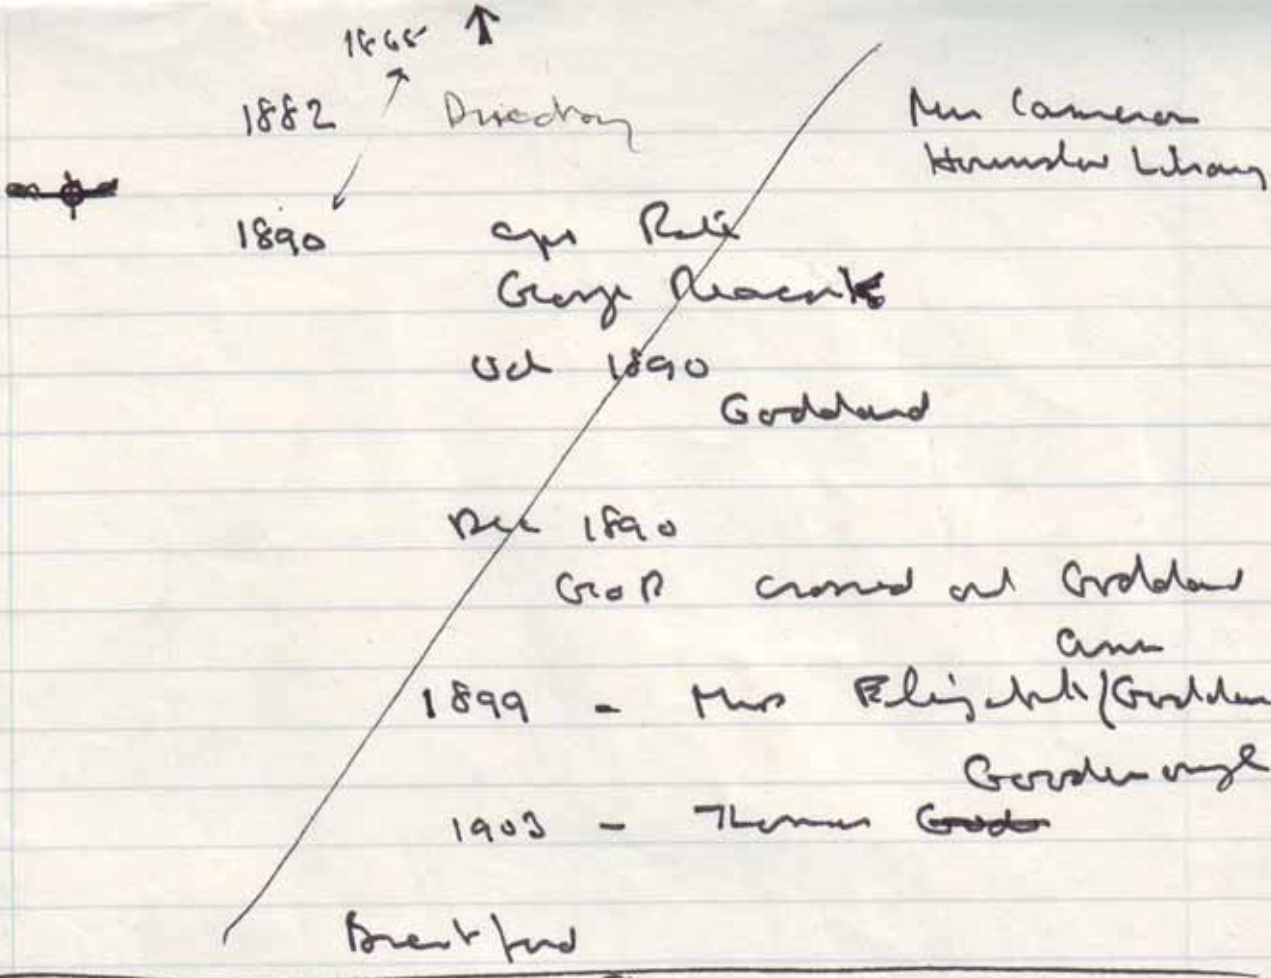 1868
1882 Directory
Mrs Cameron
Hounslow Library
1890 Apr Rate
George Peacock
Oct 1890
Goddard
Dec 1890
Geo P crossed out Goddard
Ann
1899 - Mrs Elizabeth / Goddard
Goodenough
1903 - Thomas
Brentford